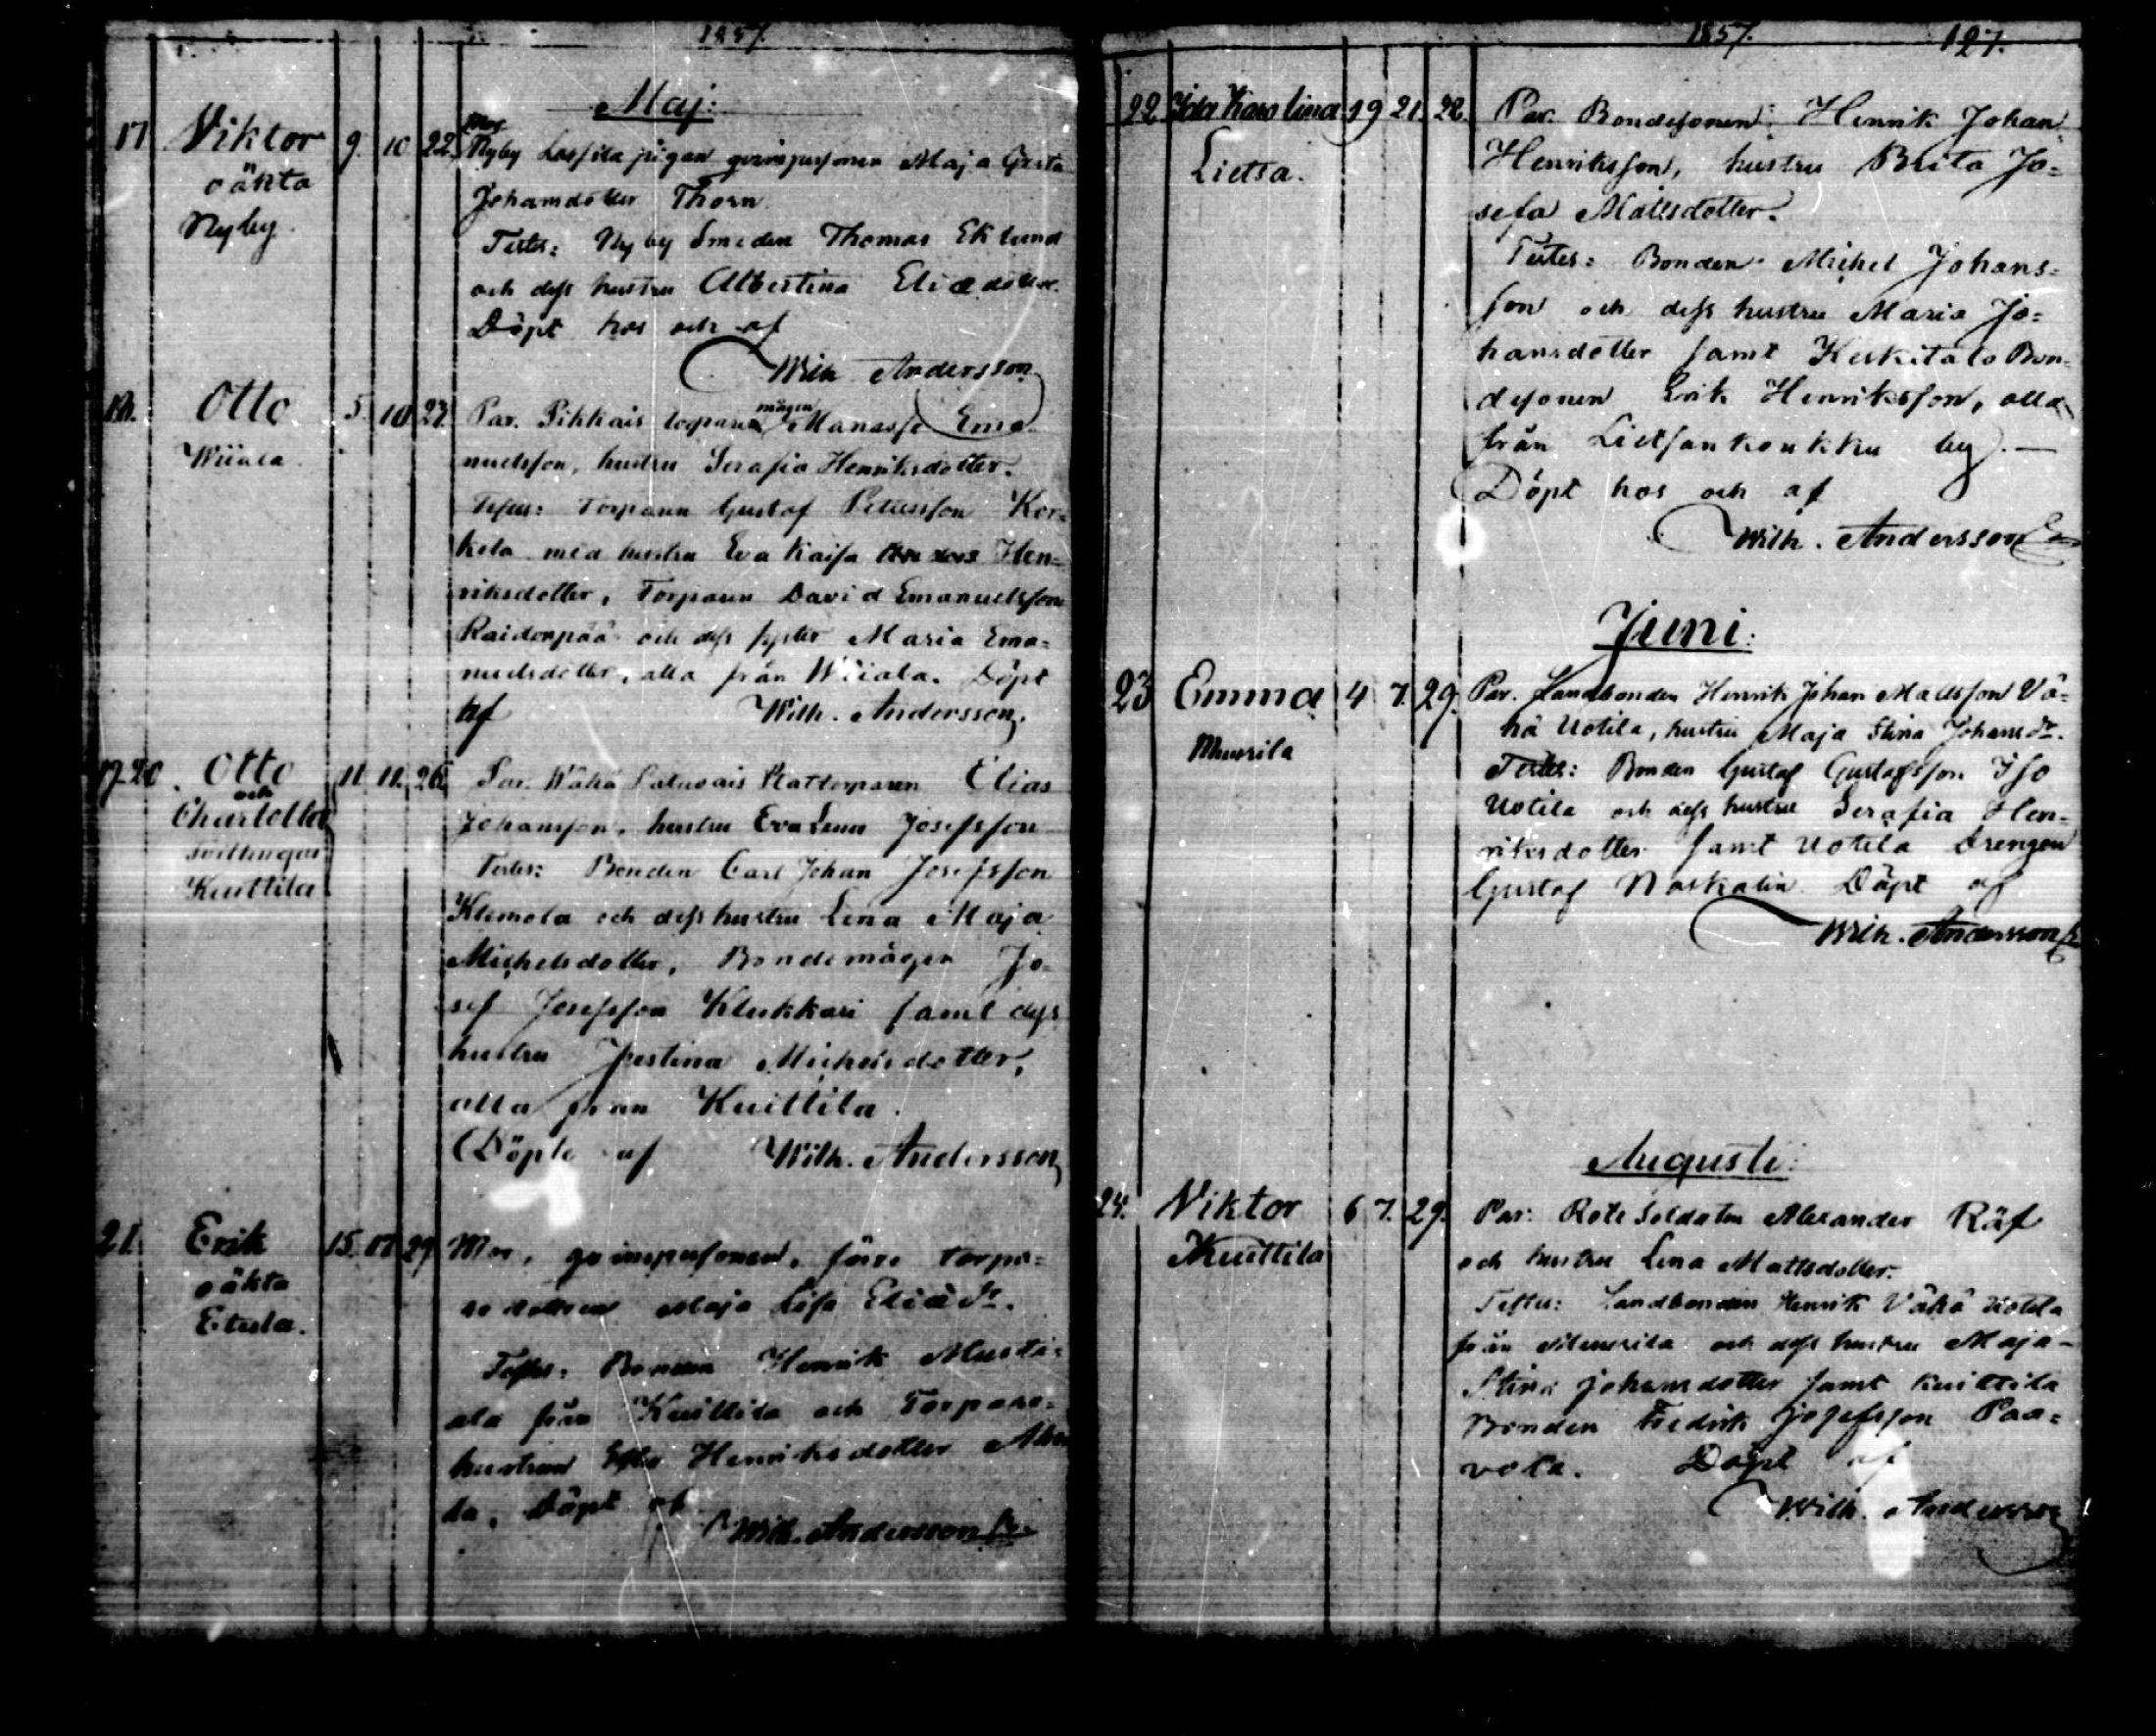 1857.
Maj:
17 Viktor 9. 10 22. Mor
Nyby pigan Maja Greta
oäkta
Johansdotter Thorn
Nyby.
Testes: Nyby Smeden Thomas Eklund
och dess hustru Albertina Eliædotter.
Döpt hos och af
Wilh. Andersson
18. Otto 5. 10 27. Par. Pikkais torparemågen Manasse Ema-
Wiiala.
nuelsson, hustru Serafia Henriksdotter.
Testes: Torparen Gustaf Petersson Kor-
kela med hustru Eva Kaisa Hen-
riksdotter, Torparen David Emanuelsson
Raidenpää och dess syster Maria Ema-
nuelsdotter, alla från Wiiala. Döpt
af Wilh. Andersson.
19.20. Otto 11. 11. 26. Par. Wähä Elias
och
Charlotta
Johansson, hustru Eva Lena Josefsson
Tvillingar
Testes: Bonden Carl Johan Josefsson
Kuittila
Klemola och dess hustru Lena Maja
Michelsdotter, Bondemågen Jo-
sef Josefsson Klukkari samt dess
hustru Justina Michelsdotter,
alla från Kuittila.
Döpte af Wilh. Andersson
21. Erik 15. 17. 29. Mor, qvinspersonen, förre torpa-
oäkta
redottren Maja Lisa Eliæ dr.
Etula.
Testes: Bonden Henrik Musta-
ala från Kuittila och Torpare-
hustrun Henriksdotter
la. Döpt af
Wilh. Andersson
1857. 127.
22 Ida Karolina 19 21. 22. Par. Bondesonen Henrik Johan
Lietsa.
Henriksson, hustru Brita Jo-
sefa Mattsdotter.
Testes: Bonden Michel Johans-
son och dess hustru Maria Jo-
hansdotter samt Keskitalo Bon-
desonen Erik Henriksson, alla
från Lietsankoukku by.—
Döpt hos och af
Wilh. Andersson
Juni:
23 Emma 4 7. 29. Par. Landbonden Henrik Johan Mattsson Vä-
hä Uotila, hustru Maja Stina Johans dr.
Muurila
Testes: Bonden Gustaf Gustafsson Iso
Uotila och dess hustru Serafia Hen-
riksdotter samt Uotila Drengen
Gustaf Naskalin Döpt af
Wilh. Andersson
Augusti:
24. Viktor 6 7. 29. Par: Rote Soldaten Alexander Räf
Kuittila
och hustru Lena Mattsdotter.
Testes: Landbonden Henrik Vähä Uotila
från Muurila och dess hustru Maja-
Stina Johansdotter samt Kuittila
Bonden Fredrik Josefsson Paa-
vola. Döpt af
Wilh. Andersson